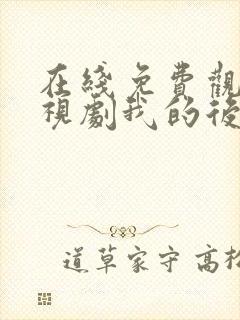 在綫免費觀
視劇我的後
道草家守 高松